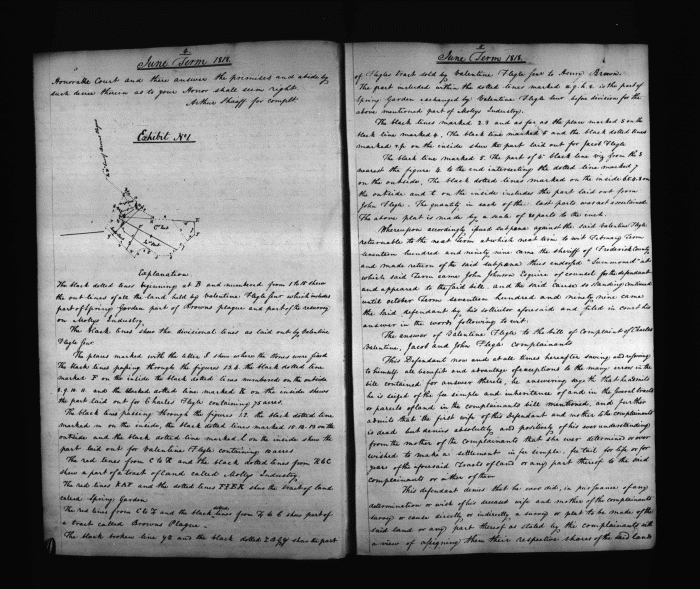 4
June Term 1818.
Honorable Court and there answer the premises and abide by
such decree therein as to your Honor shall seem right
Arthur Shaaff for complt
Exhibit No1
Explanation
The black dotted lines beginning at B and numbered from 1 to 18 shew
the out lines of all the land held by Valentine Flegle senr which includes
part of Spring Garden part of Browns plague and part of the resurvey
on Motlys Industry
The black lines shew the divisional lines as laid out by Valentine
Flegle senr
The places marked with the letter S shew where the stones were fixed
The black lines passing through the figures 13.4. the black dotted line
marked F on the inside the black dotted lines numbered on the outside
8.9.10.11 and the blacked dotted line marked K on the inside shews
the part laid out for Charles Flegle containing 75 acres
The black lines passing through the figures 12 the black dotted line
marked m on the inside, the black dotted lines marked 10.12.13 on the
outside and the black dotted line marked L on the inside shew the
part laid out for Valentine Flegle containing 10 acres
The red lines from C to R and the black dotted lines from R to C
shew a part of a tract of land called Motlys Industry
The red lines and the dotted lines shew the tract of land
called Spring Garden
The red lines from C to Z and the black dotted lines from Z to C shew part of
a tract called Browns Plague
The black broken line and the black dotted shew the part
5
June Term 1818.
of Flegles tract sold by Valentine Flegle senr to Henry Brown.
The part included within the dotted lines marked a.g.h.z. is the part of
Spring Garden exchanged by Valentine Flegle senr before division for the
above mentioned part of Motlys Industry.
The black lines marked 2.3 and as far as the place marked S on the
black line marked 4, The black line marked 5 and the black dotted lines
marked on the inside shew the part laid out for Jacob Flegle
The black line marked 5. The part of 4th black line viz from the S
nearest the figure 4 to the end intersecting the dotted line marked 7
on the outside, the black dotted lines marked on the inside on
the outside and t on the inside includes the part laid out from
John Flegle. The quantity in each of the last parts was not ascertained.
The above plat is made by a scale of reports to the inch.
Whereupon accordingly spud subpana against the said Valentine Flegle
returnable to the next term at which next term to wit February Term
seventeen hundred and ninety nine came the sheriff of Frederick County
and made return of the said subpana thus endorsed "Summoned" at
which said Term came John Johnson Esquire of counsel for the defendant
and appeared to the said bill. and the said cause so standing continued
until October Term seventeen hundred and ninety nine came
the said defendant by his solicitor aforesaid and filed in court his
answer in the words following to wit;
The answer of Valentine Flegle to the bill of Complaint of Charles
Valentine, Jacob and John Flegle complainants
This Defendant now and at all times hereafter saving and reserving
to himself all benefit and advantage of exceptions to the many errors in the
bill contained for answer thereto, he answering says that he admits
he is seized of the fee simple and inheritance of and in the several tracts
or parcels of land in the complainants bill mentioned, and further
admits that the first wife of this Defendant and mother to the complainants
is dead but denies absolutely and positively of his ever understanding
from the mother of the complainants that she ever determined or ever
wished to make a settlement in fee simple, fee tail for life or for
years of the aforesaid Tracts of land or any part thereof to the said
complainants or either of them
This defendant denies that he ever did, in pursuance of any
determination or wish of his deceased wife and mother of the complainants
survey or cause directly or indirectly a survey or plat to be made of the
said land or any part thereof as stated by the complainants with
a view of assigning them their respective shares of the said lands